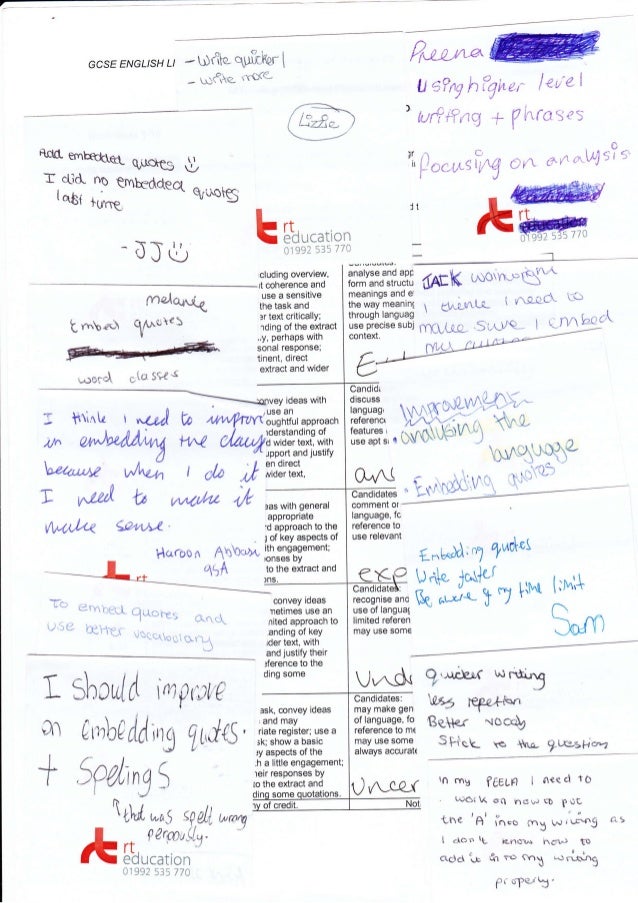 GCSE ENGLISH LI
- Write quicker!
- write more
Lizzie
Preena
Using higher level
writing + phrases
focusing on analysis
rt
education
01992 535 770
Add embedded quotes
I did no embedded quotes
last time
- JJ
rt
education
01992 535 770
cluding overview,
it coherence and
use a sensitive
the task and
er text critically;
nding of the extract
y, perhaps with
sonal response;
tinent, direct
extract and wider
analyse and app
form and structu
meanings and e
the way meaning
through languag
use precise subj
context.
JACK
I think I need to
make sure I embed
my
melanie
Embed quotes
word classes
convey ideas with
use an
oughtful approach
nderstanding of
d wider text, with
upport and justify
en direct
wider text,
Candid
discuss
languag
referenc
features
use apt s
Improvement
analysing the
language
Embedding quotes
I think I need to improv
in embedding the
because when I do it
I need to make it
make sense.
Haroon Abbasi
9SA
rt
eas with general
appropriate
d approach to the
g of key aspects of
ith engagement;
onses by
to the extract and
ons.
Candidates
comment or
language, fo
reference to
use relevant
ans
exp
Embedding quotes
Write faster
Be aware of my time limit
Sam
To embed quotes and
use better vocabolary
convey ideas
metimes use an
mited approach to
anding of key
der text, with
and justify their
eference to the
ding some
Candidates
recognise and
use of languag
limited referen
may use some
Und
Quicker writing
less repetion
Better vocab
Stick to the question
I should improve
on embedding quotes.
+ Spelings
that was spelt wrong
perpously.
rt
education
01992 535 770
ask, convey ideas
and may
riate register; use a
sk; show a basic
ey aspects of the
h a little engagement;
heir responses by
to the extract and
ding some quotations.
ny of credit.
Candidates:
may make gen
of language, fo
reference to me
may use some
always accurate
Uncer
Not
in my PEELA I need to
work on how to put
the 'A' into my writing as
I don't know how to
add it in to my writing
properly.